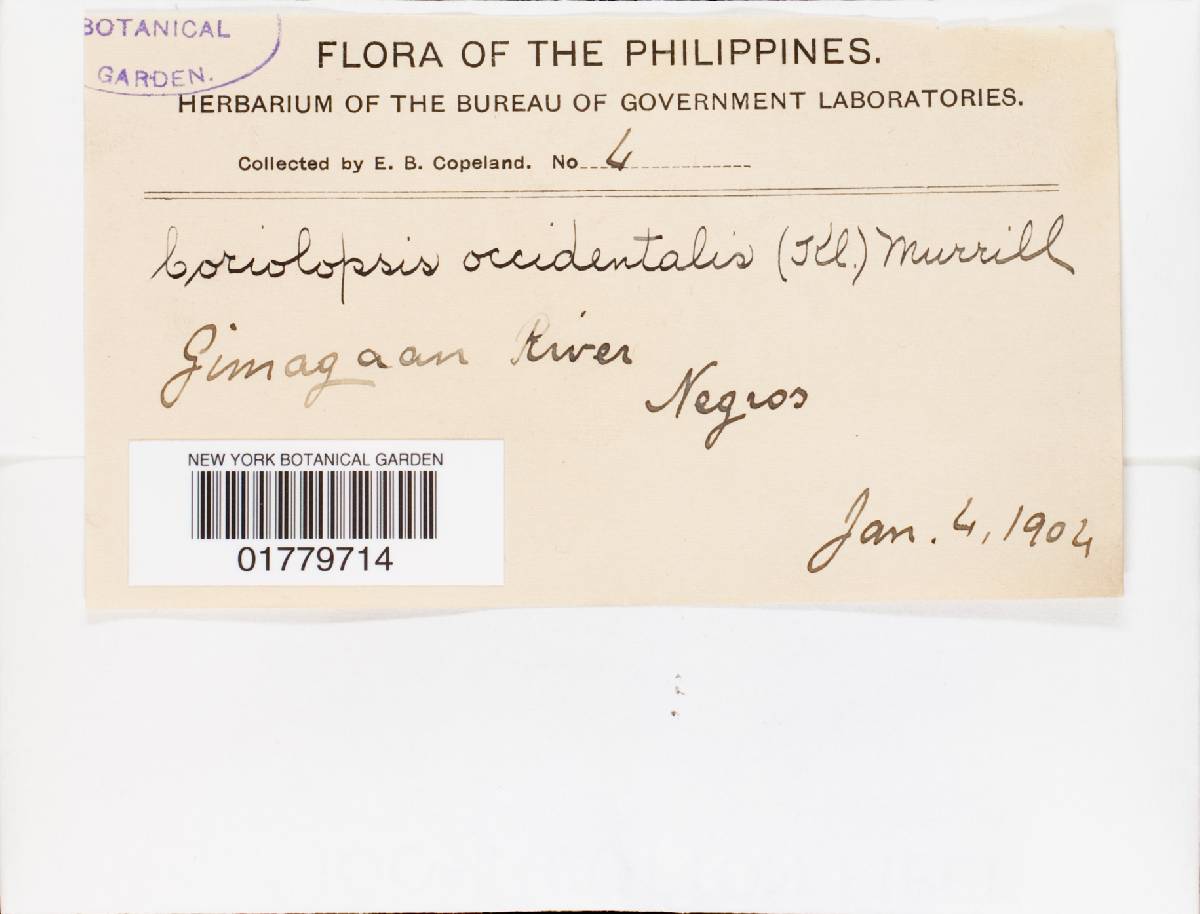 BOTANICAL
GARDEN.
FLORA OF THE PHILIPPINES.
HERBARIUM OF THE BUREAU OF GOVERNMENT LABORATORIES.
Collected by E. B. Copeland. No. 4
Coriolopsis occidentalis (Kl.) Murrill
Gimagaan River
Negros
NEW YORK BOTANICAL GARDEN
01779714
Jan. 4, 1904